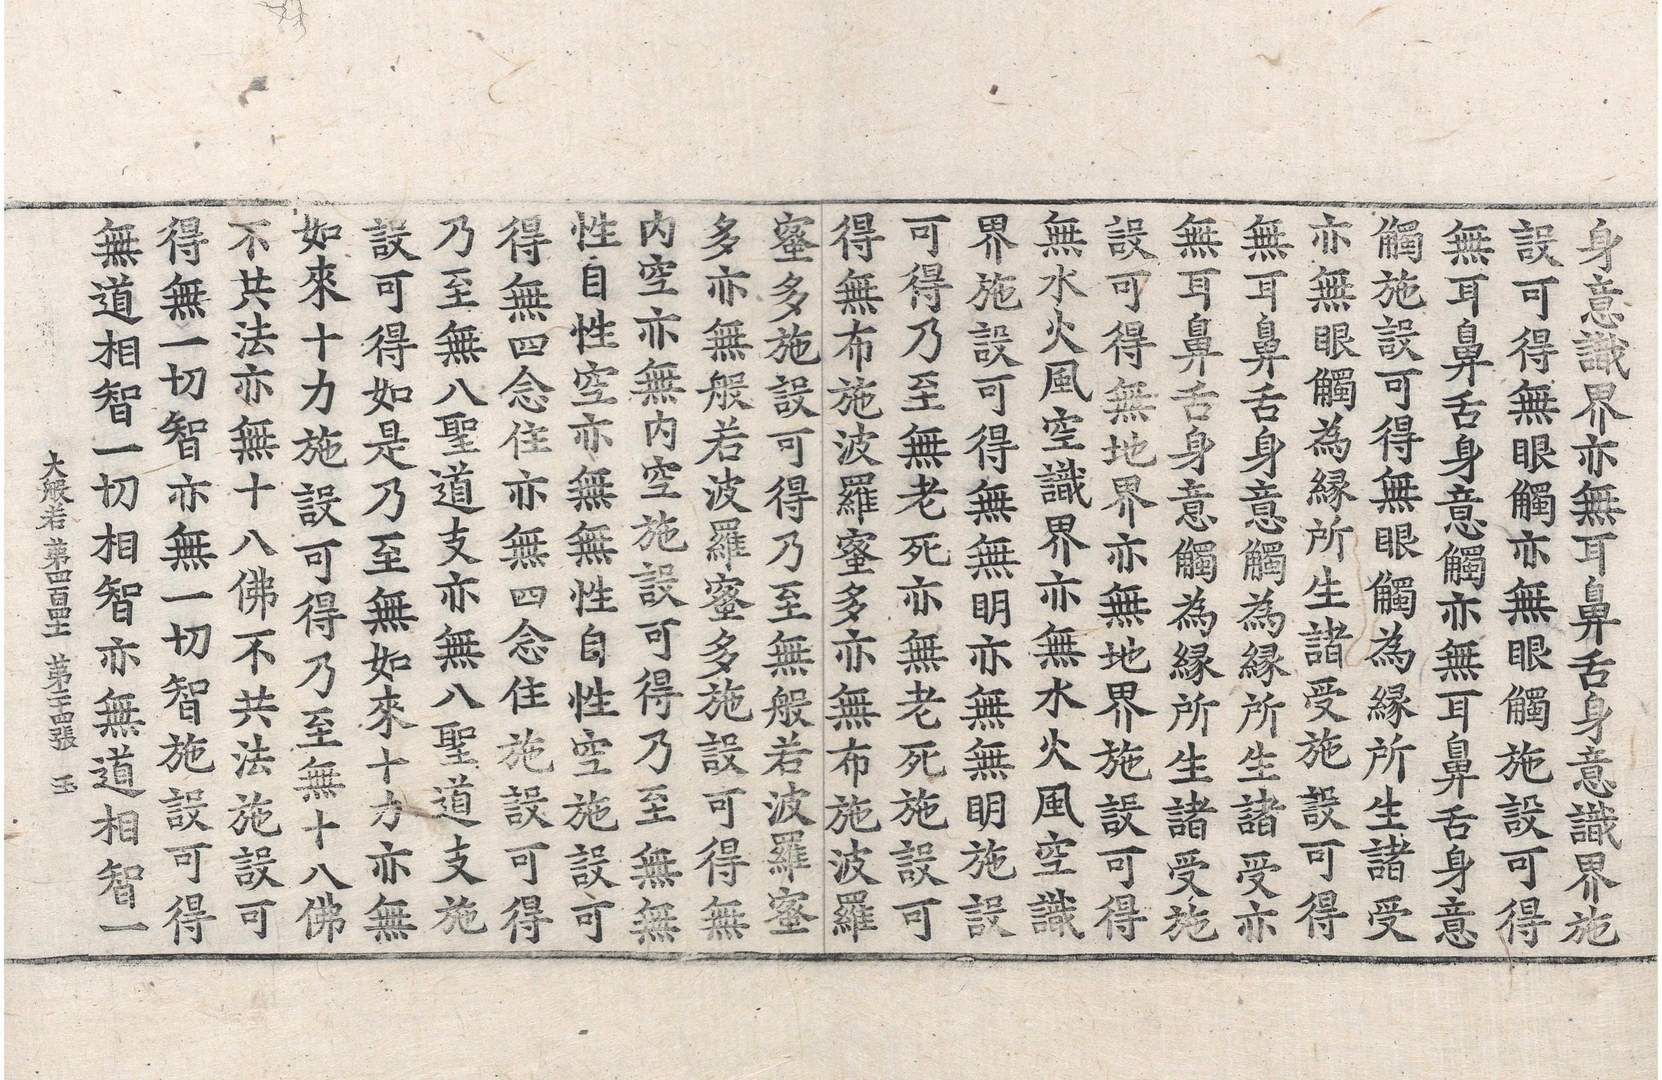 身意識界亦無耳鼻舌身意識界施
設可得無眼觸亦無眼觸施設可得
無耳鼻舌身意觸亦無耳鼻舌身意
觸施設可得無眼觸為縁所生諸受
亦無眼觸為縁所生諸受施設可得
無耳鼻舌身意觸為縁所生諸受亦
無耳鼻舌身意觸為縁所生諸受施
設可得無地界亦無地界施設可得
無水火風空識界亦無水火風空識
界施設可得無無明亦無無明施設
可得乃至無老死亦無老死施設可
得無布施波羅蜜多亦無布施波羅
蜜多施設可得乃至無般若波羅蜜
多亦無般若波羅蜜多施設可得無
内空亦無内空施設可得乃至無無
性自性空亦無無性自性空施設可
得無四念住亦無四念住施設可得
乃至無八聖道支亦無八聖道支施
設可得如是乃至無如來十力亦無
如來十力施設可得乃至無十八佛
不共法亦無十八佛不共法施設可
得無一切智亦無一切智施設可得
無道相智一切相智亦無道相智一
大般若第四百 第 四張 玉